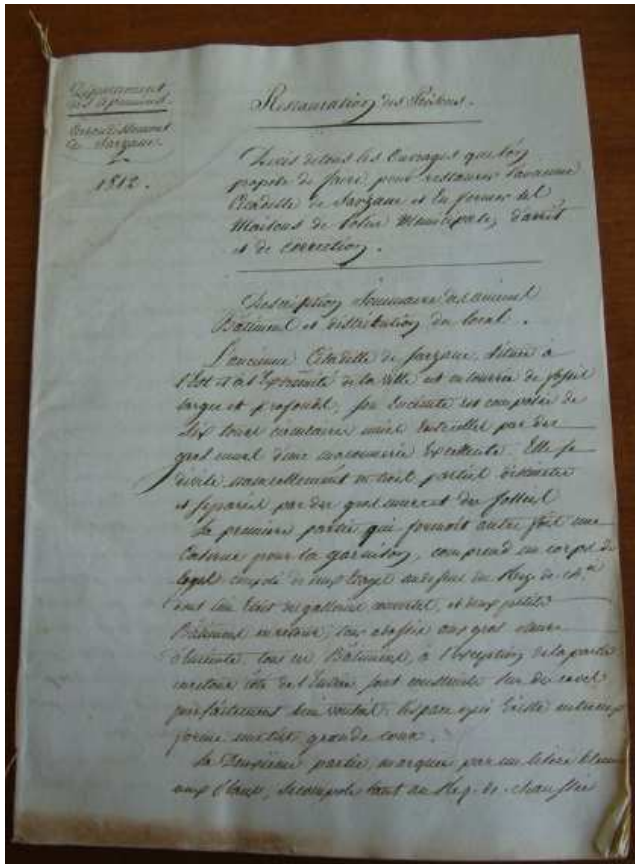 Département
des Apennins.
Arrondissement
de Sarzane.
1812.
Restauration des Prisons.
Devis de tous les Ouvrages que l'on
propose de faire pour restaurer l'ancienne
Citadelle de Sarzane et en former des
Maisons de Police Municipale, d'arrêt
et de correction.
Description Sommaire des anciens
Bâtimens et distribution du local.
L'ancienne Citadelle de Sarzane, située à
l'Est et à l'Extrémité de la ville est entourée de fossés
larges et profonds; son Enceinte est composée de
six tours circulaires unies Ensemble par des
gros murs d'une maçonnerie Excellente. Elle se
divise naturellement en trois parties distinctes
et séparées par des gros murs et des fossés
La première partie qui formoit autre fois une
Caserne pour la garnison, comprend un corps de
logis composé de deux Etages au dessus du Rez-de-Ch.ée
dont l'un Etoit en galetas, et deux petits
Bâtimens en retour, tous adossés aux gros murs
d'Enceinte, tous ces Bâtimens, à l'exception de la partie
en retour côté de l'Entrée sont construits sur des caves
parfaitement bien voutées. l'espace qui Existe entre eux
forme une très grande cour.
La Deuxième partie, marquée par
aux Plans, se compose tant au Rez-de-chaussée